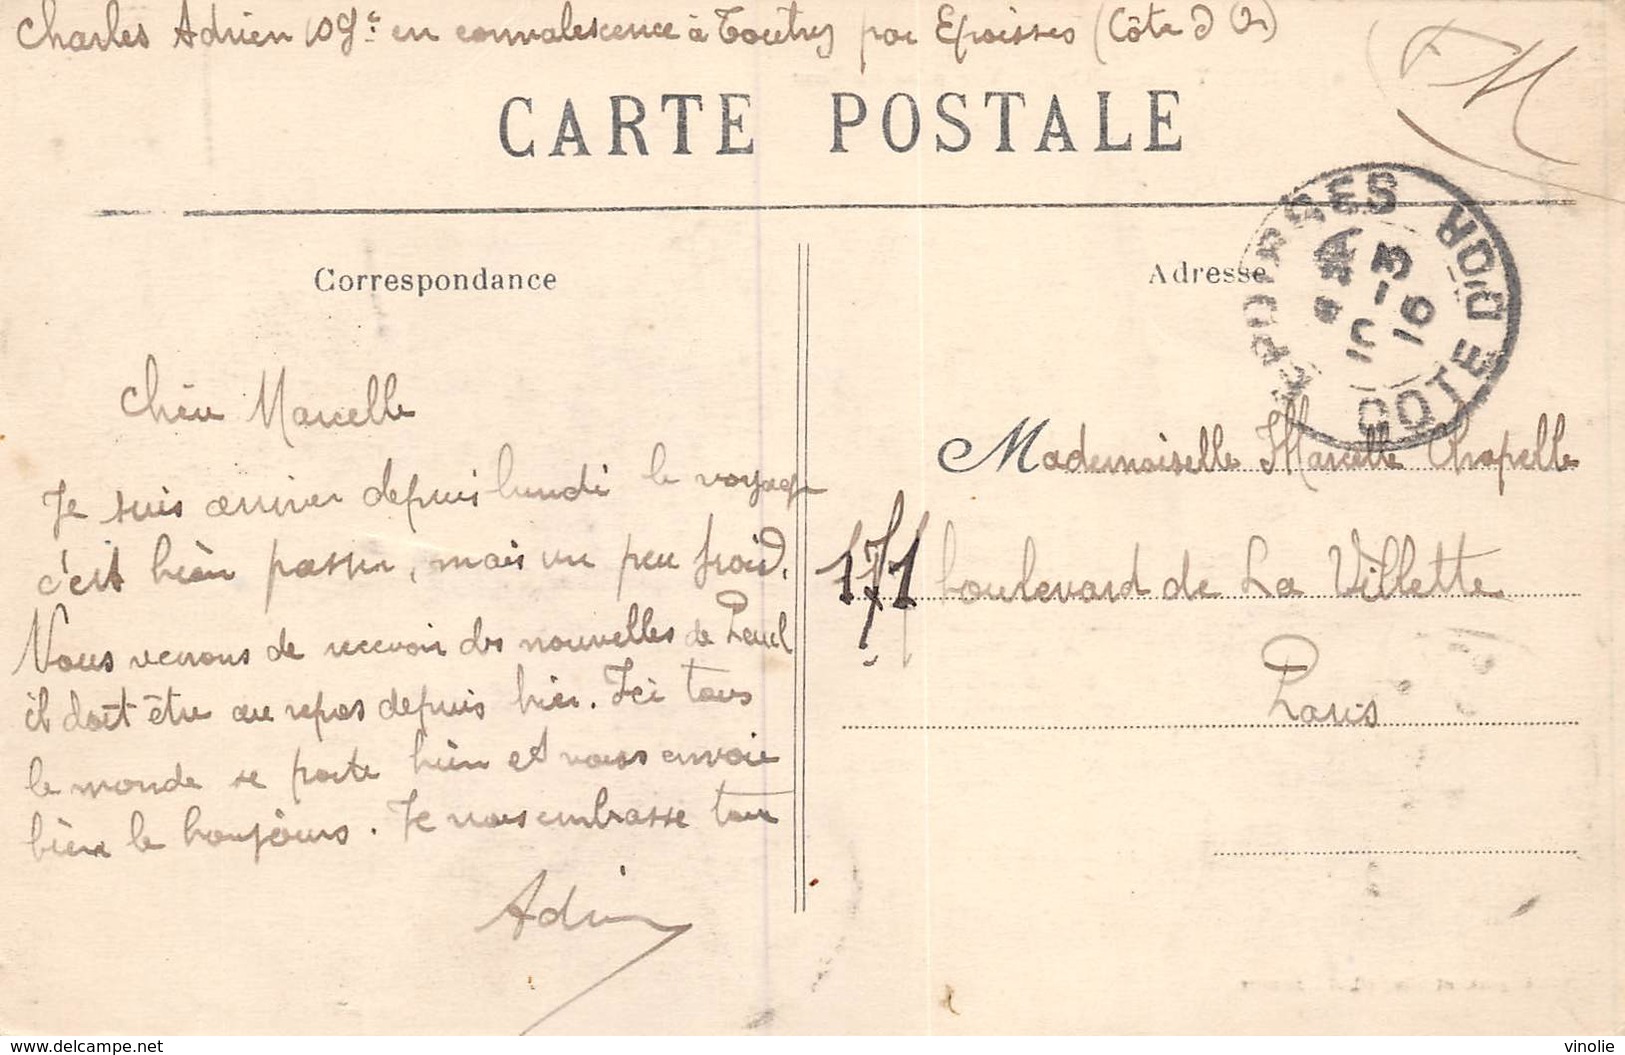 Charles Adrien 109e en convalescence à Toutry par Epoisses (Côte d'Or)
FM
CARTE POSTALE
Correspondance
Adresse
EPOISSES COTE D'OR
5 -3
16
Chère Marcelle
Je suis arriver depuis lundi le voyage
c'est bièn passer, mais un peu froid.
Nous venons de recevoir des nouvelles de Paul
il doit être au repos depuis hier. Ici tous
le monde se porte bièn et vous envoie
bièn le bonjours. Je vous embrasse tous
Adrien
Mademoiselle Marcelle Chapelle
171 boulevard de La Villette
Paris
www.delcampe.net
vinolie